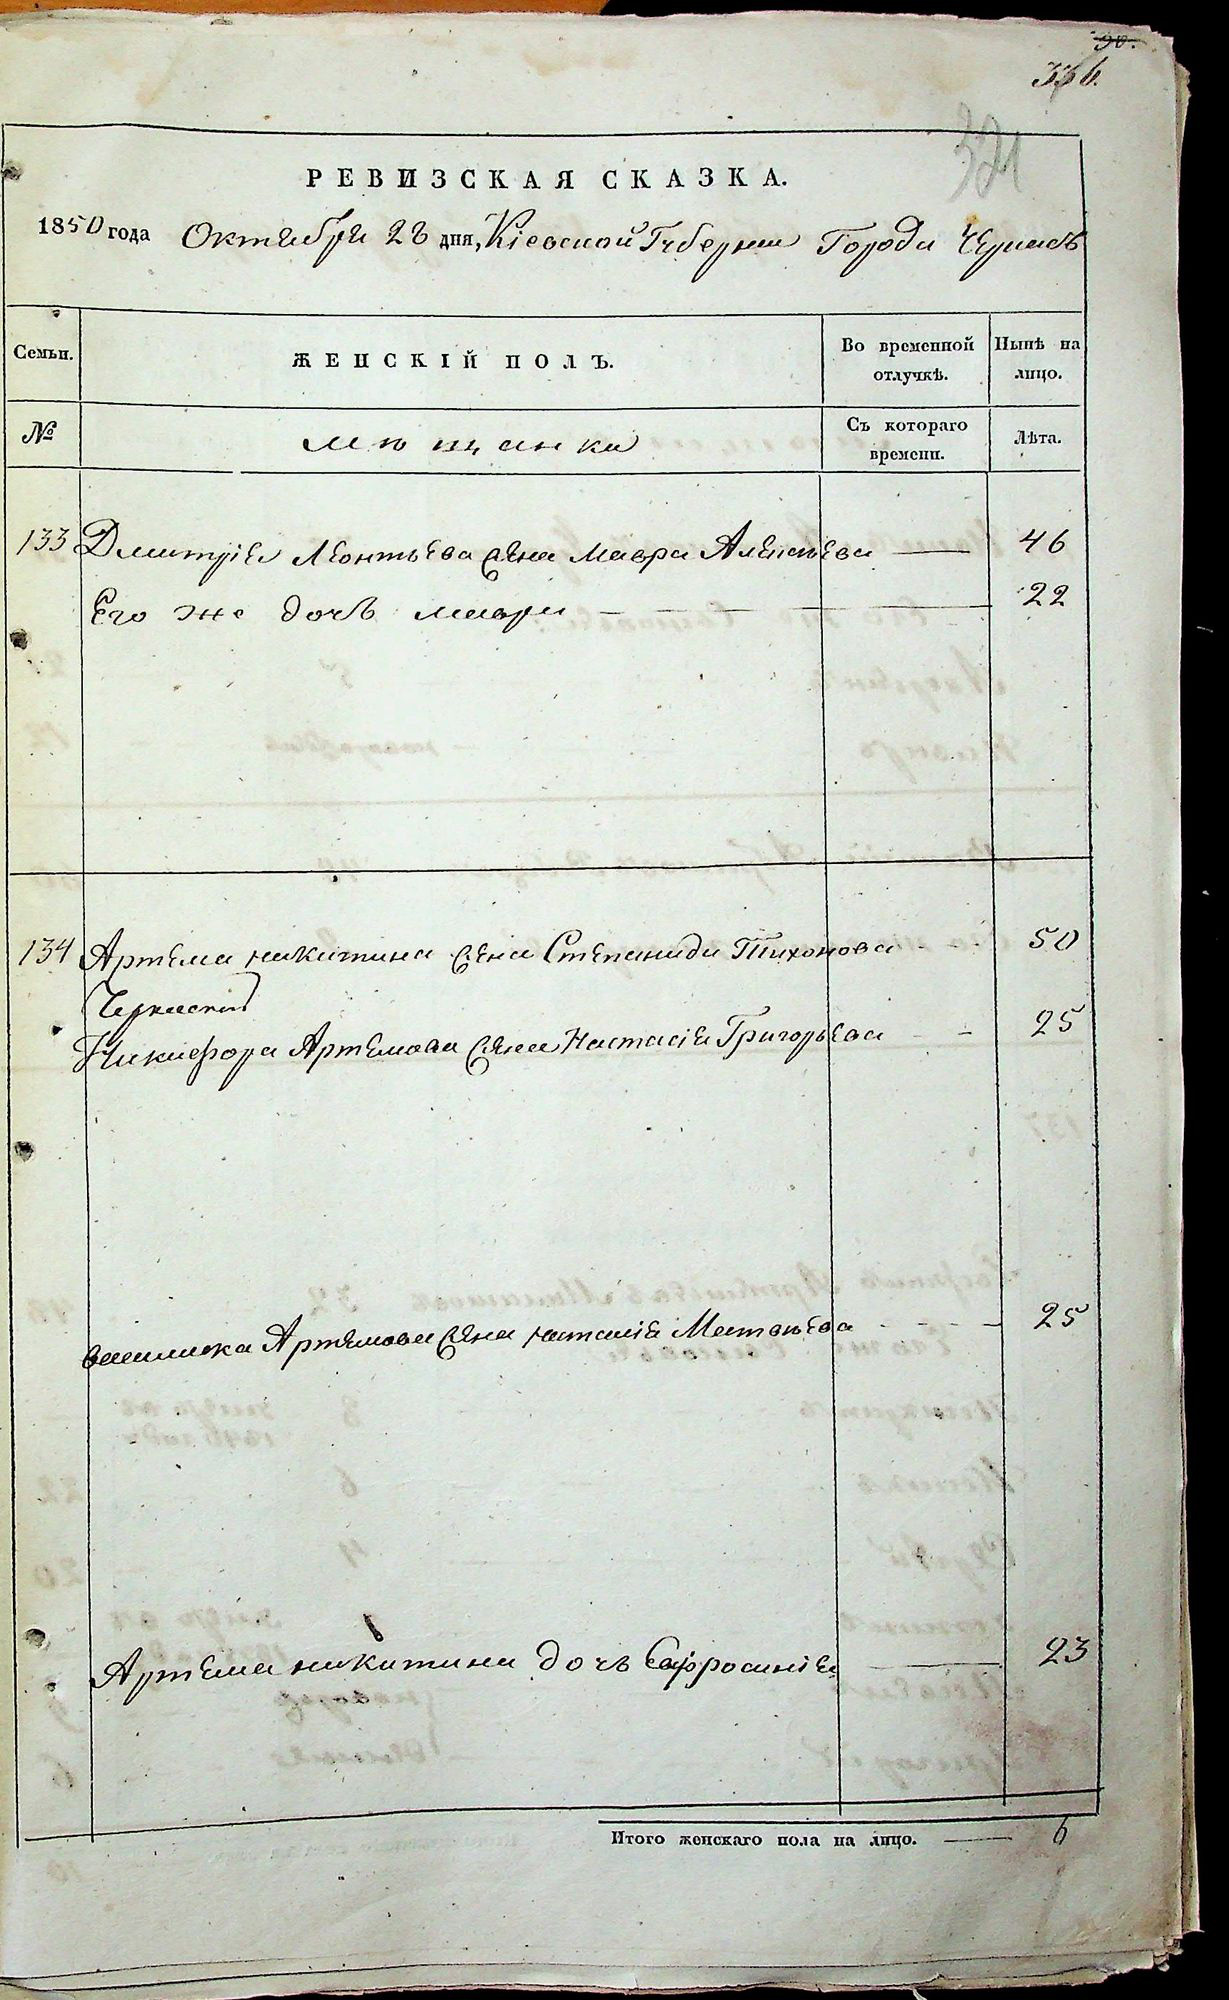 336.
321
РЕВИЗСКАЯ СКАЗКА.
1850 года Октября 28 дня, Кіевской Губерніи Города Черкасъ
Семьи.
ЖЕНСКІЙ ПОЛЪ.
Во временной отлучкѣ.
Нынѣ на лицо.
№
мѣщанки
Съ котораго времени.
Лѣта.
133 Дмитрія Леонтьева жена Мавра Алексѣева — 46
Его же дочь Мавра — 22
134 Артема Никитина жена Степанида Тихонова - 50
Черкаскій
Никифора Артемова жена Настасія Григорьева - 25
Василиска Артемова жена Наталія Матвѣева - 25
Артема Никитина дочь Евфросинія — 23
Итого женскаго пола на лицо. — 6